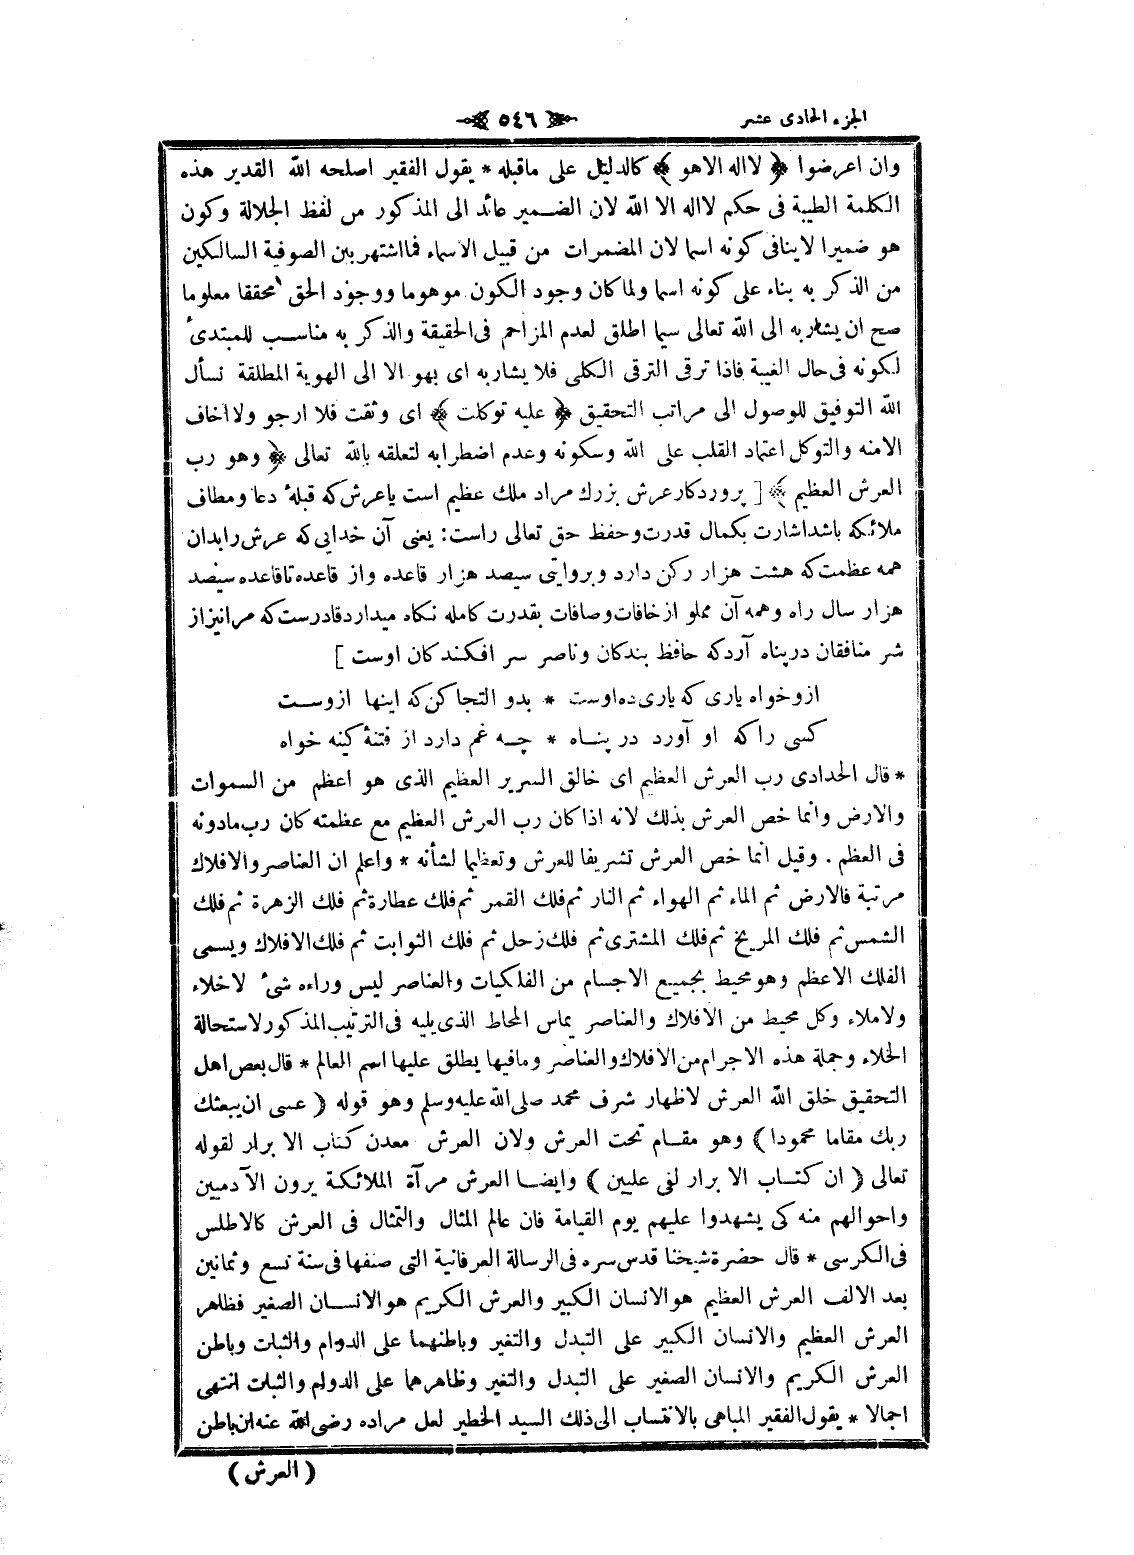 الجزء الحادى عشر
٥٤٦
وان اعرضوا ﴿ لااله الاهو ﴾ كالدليل على ماقبله * يقول الفقير اصلحه الله القدير هذه
الكلمة الطيبة فى حكم لااله الا الله لان الضمير عائد الى المذكور من لفظ الجلالة وكون
هو ضميرا لاينافى كونه اسما لان المضمرات من قبيل الاسماء فمااشتهربين الصوفية السالكين
من الذكر به بناء على كونه اسما ولماكان وجود الكون موهوما ووجود الحق محققا معلوما
صح ان يشاربه الى الله تعالى سيما اطلق لعدم المزاحم فى الحقيقة والذكر به مناسب للمبتدئ
لكونه فى حال الغيبة فاذا ترقى الترقى الكلى فلا يشاربه اى بهو الا الى الهوية المطلقة نسأل
الله التوفيق للوصول الى مراتب التحقيق ﴿ عليه توكلت ﴾ اى وثقت فلا ارجو ولااخاف
الامنه والتوكل اعتماد القلب على الله وسكونه وعدم اضطرابه لتعلقه بالله تعالى ﴿ وهو رب
العرش العظيم ﴾ [ پروردكار عرش بزرك مراد ملك عظيم است ياعرش كه قبلۀ دعا ومطاف
ملائكه باشداشارت بكمال قدرت وحفظ حق تعالى راست: يعنى آن خدايى كه عرش رابدان
همه عظمت كه هشت هزار ركن دارد وبروايتى سيصد هزار قاعده واز قاعده تاقاعده سيصد
هزار سال راه وهمه آن مملو ازخافات وصافات بقدرت كامله نكاه ميدارد قادرست كه مرانيز از
شر منافقان درپناه آردكه حافظ بندكان وناصر سر افكندكان اوست ]
ازو خواه يارى كه يارى ده اوست * بدو التجا كن كه اينها ازوست
كسى راكه او آورد در پناه * چه غم دارد از فتنۀ كينه خواه
* قال الحدادى رب العرش العظيم اى خالق السرير العظيم الذى هو اعظم من السموات
والارض وانما خص العرش بذلك لانه اذا كان رب العرش العظيم مع عظمته كان رب مادونه
فى العظم . وقيل انما خص العرش تشريفا للعرش وتعظيما لشأنه * واعلم ان العناصر والافلاك
مرتبة فالارض ثم الماء ثم الهواء ثم النار ثم فلك القمر ثم فلك عطارة ثم فلك الزهرة ثم فلك
الشمس ثم فلك المريخ ثم فلك المشترى ثم فلك زحل ثم فلك الثوابت ثم فلك الافلاك ويسمى
الفلك الاعظم وهو محيط بجميع الاجسام من الفلكيات والعناصر ليس وراءه شئ لاخلاء
ولاملاء وكل محيط من الافلاك والعناصر يماس المحاط الذى يليه فى الترتيب المذكور لاستحالة
الخلاء وجملة هذه الاجرام من الافلاك والعناصر ومافيها يطلق عليها اسم العالم * قال بعض اهل
التحقيق خلق الله العرش لاظهار شرف محمد صلى الله عليه وسلم وهو قوله ( عسى ان يبعثك
ربك مقاما محمودا ) وهو مقام تحت العرش ولان العرش معدن كتاب الابرار لقوله
تعالى ( ان كتاب الابرار لفى عليين ) وايضا العرش مرآة الملائكة يرون الآدميين
واحوالهم منه كى يشهدوا عليهم يوم القيامة فان عالم المثال والتمثال فى العرش كالاطلس
فى الكرسى * قال حضرة شيخنا قدس سره فى الرسالة العرفانية التى صنفها فى سنة تسع وثمانين
بعد الالف العرش العظيم هو الانسان الكبير والعرش الكريم هو الانسان الصغير فظاهر
العرش العظيم والانسان الكبير على التبدل والتغير وباطنهما على الدوام والثبات وباطن
العرش الكريم والانسان الصغير على التبدل والتغير وظاهرهما على الدوام والثبات انتهى
اجمالا * يقول الفقير المباهى بالانتساب الى ذلك السيد الخطير لعل مراده رضى الله عنه ان باطن
( العرش )